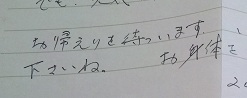 でも、
お帰えりを待っています。
お身体を
下さいね。